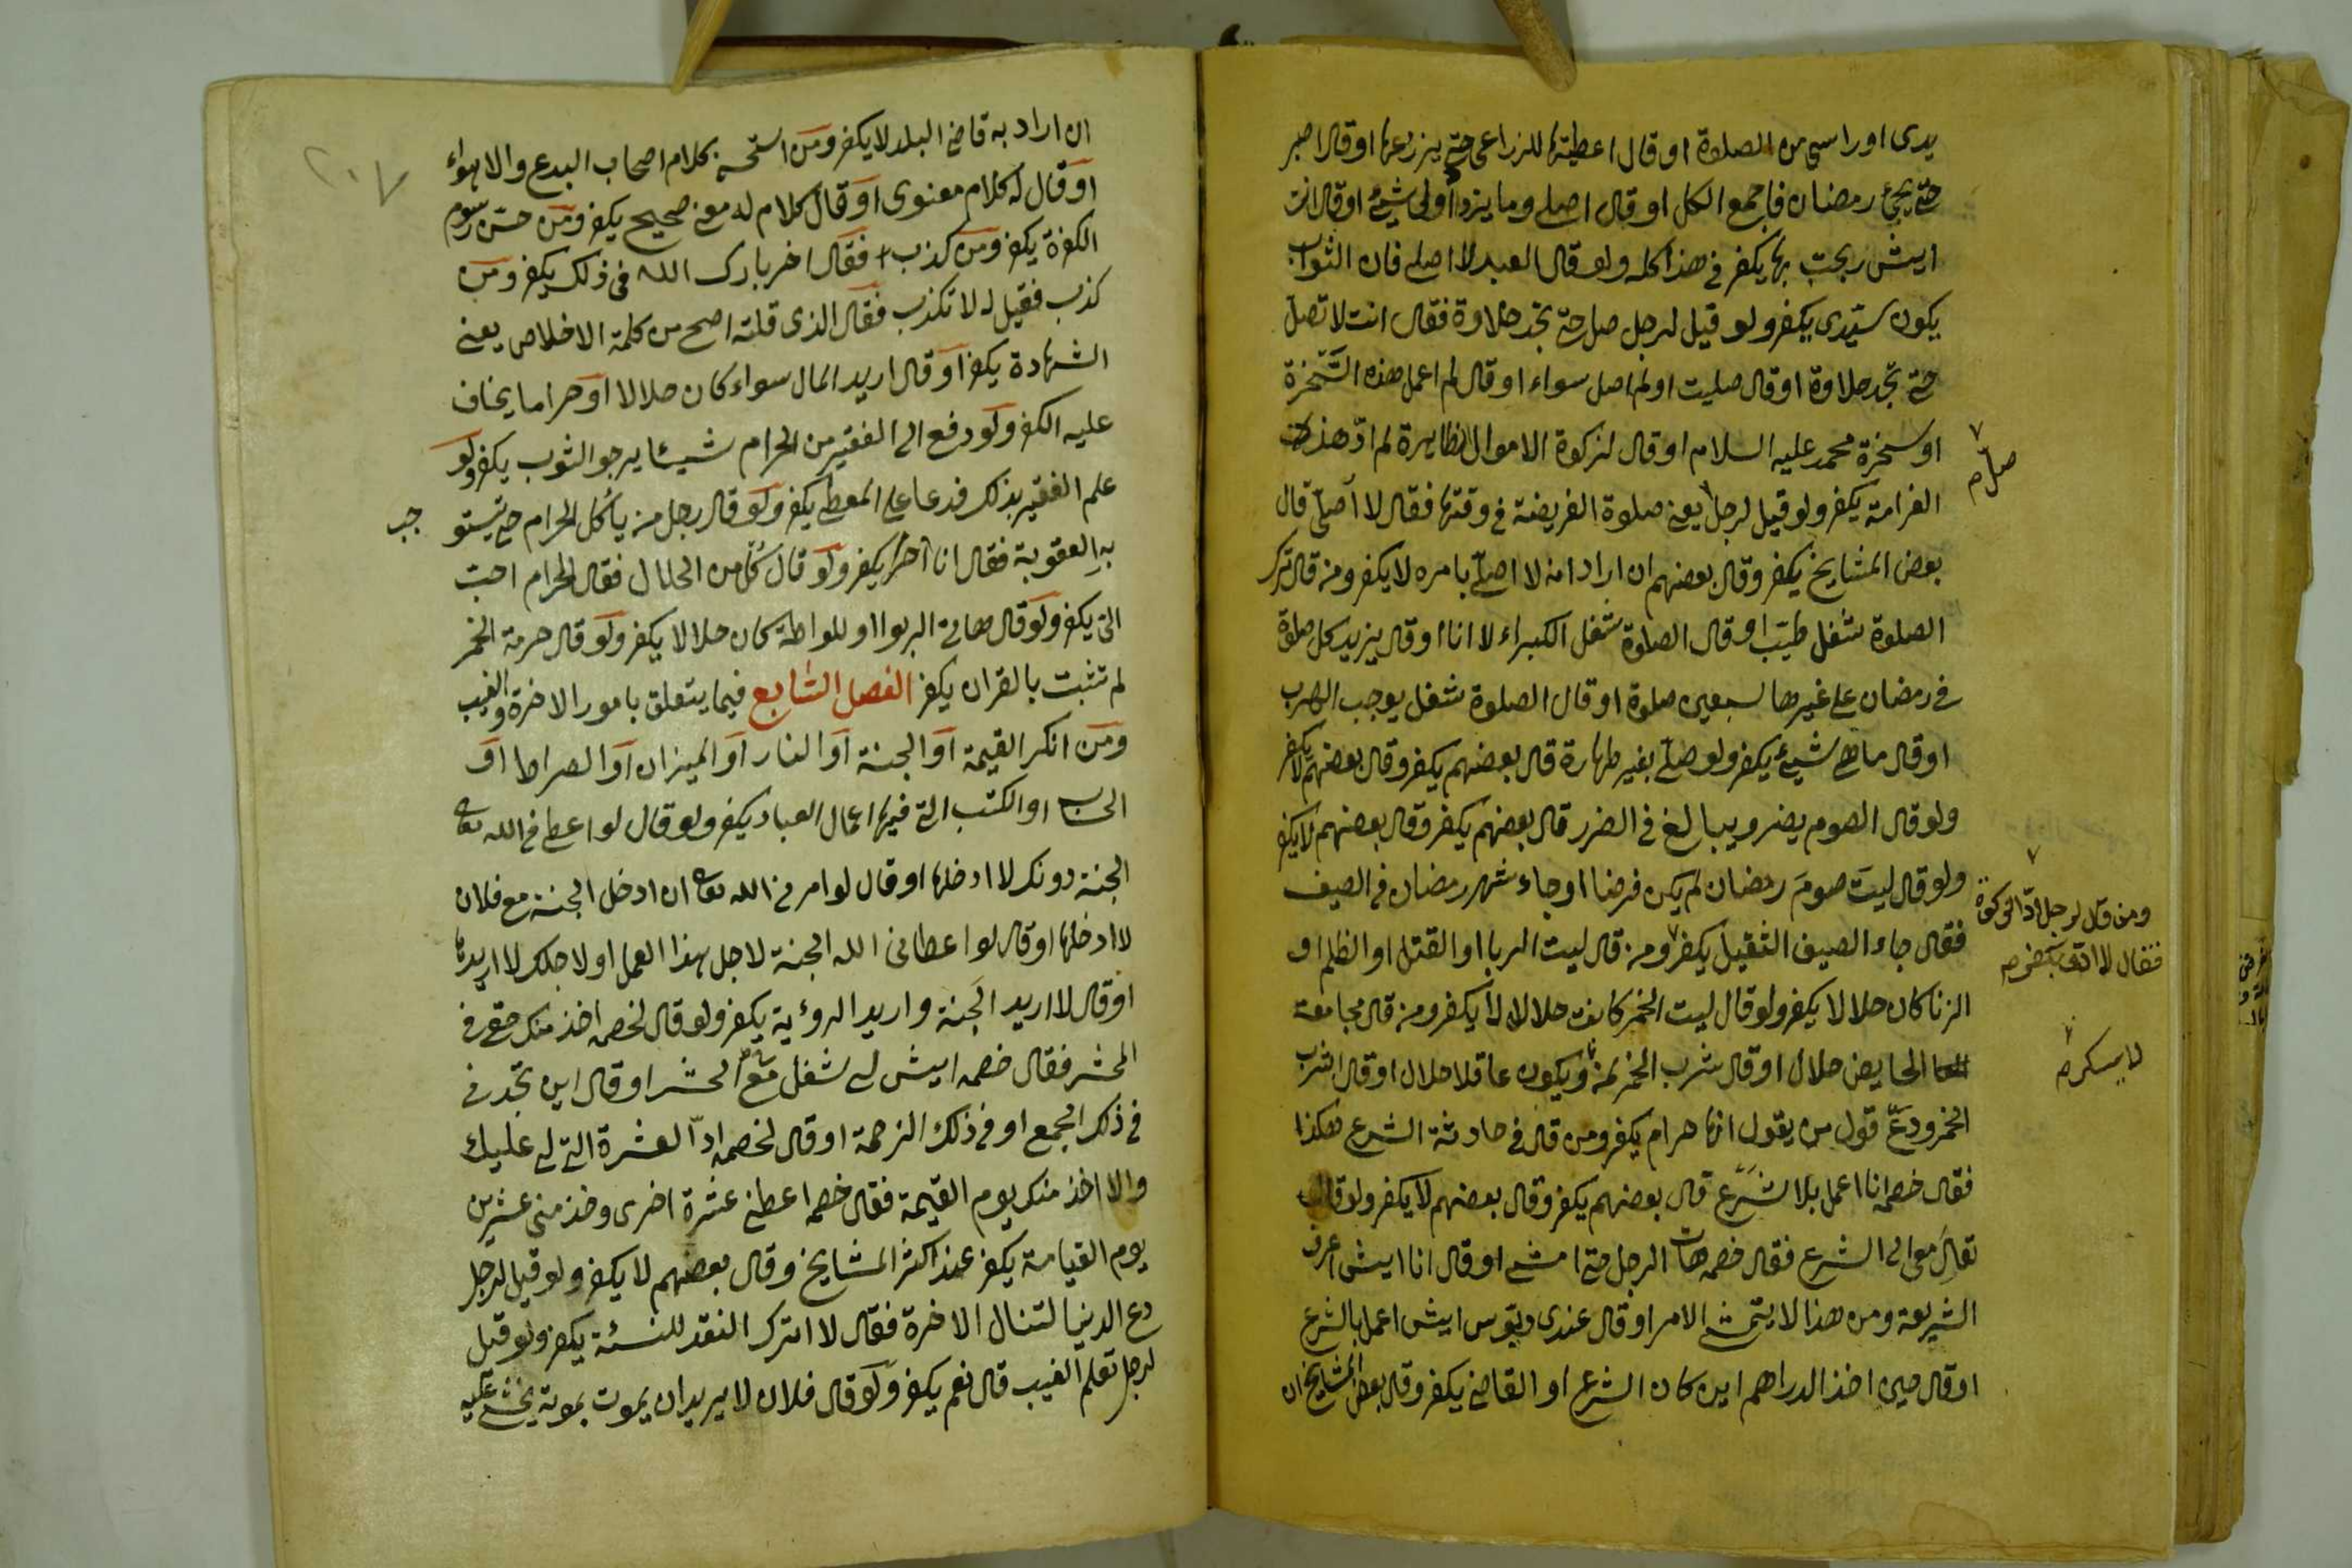 يدى او راسى من الصلوة او قال اعطيتها للزراعى حتى يزرعها او قال اصبر
حتى يجئ رمضان فاجمع الكل او قال اصلى وما يزداد لى شيئ او قال انت
ايش ربحت بها يكفر فى هذا كله ولو قال العبد لا اصلى فان الثواب
يكون سيدى يكفر ولو قيل لرجل صل حتى تجد حلاوة فقال انت لا تصل
حتى تجد حلاوة او قال صليت او لم اصل سواء او قال لم اعمل هذه السخرة
او سخرة محمد عليه السلام او قال لزكوة الاموال الظاهرة لم اد هذه
الغرامة يكفر ولو قيل لرجل يعنى صلوة الفريضة فى وقتها فقال لا اصلى قال
بعض المشايخ يكفر وقال بعضهم ان اراد انه لا اصلى بامره لا يكفر ومن قال ترك
الصلوة شغل طيب او قال الصلوة شغل الكبراء لا انا او قال يزيد كل صلوة
فى رمضان على غيرها سبعين صلوة او قال الصلوة شغل يوجب الهرب
او قال ما هى شيئ يكفر ولو صلى بغير طهارة قال بعضهم يكفر وقال بعضهم لا يكفر
ولو قال الصوم يضر ويبالغ فى الضرر قال بعضهم يكفر وقال بعضهم لا يكفر
ولو قال ليت صوم رمضان لم يكن فرضا او جاء شهر رمضان فى الصيف
فقال جاء الضيف الثقيل يكفر ومن قال ليت الربا او القتل او الظلم او
الزنا كان حلالا لا يكفر ولو قال ليت الخمر كانت حلالا لا يكفر ومن قال مجامعة
الحايض حلال او قال شرب الخمر لمن ويكون عاقلا حلال او قال اشرب
الخمر ودع قول من يقول انها حرام يكفر ومن قال فى حادثة الشرع هكذا
فقال خصمه انا اعمل بلا شرع قال بعضهم يكفر وقال بعضهم لا يكفر ولو قال
تعال معى الى الشرع فقال خصمه هات الرجل حتى امشى او قال انا ايش اعرف
الشريعة ومن هذا لا يتمشى الامر او قال عندى دبوس ايش اعمل بالشرع
او قال حين اخذ الدراهم اين كان الشرع او القاضى يكفر وقال بعض المشايخ ان
صل م
ومن قال لرجل اد الزكوة
فقال لا ادى يكفر م
لا يسكر م
٢٠٧
ان اراد به قاضى البلد لا يكفر ومن استحسن كلام اصحاب البدع والاهواء
او قال له كلام معنوى او قال كلام له معنى صحيح يكفر ومن حسن رسوم
الكفرة يكفر ومن كذب فقال اخر بارك الله فى ذلك يكفر ومن
كذب فقيل له لا تكذب فقال الذى قلته اصح من كلمة الاخلاص يعنى
الشهادة يكفر او قال اريد المال سواء كان حلالا او حراما يخاف
عليه الكفر ولو دفع الى الفقير من الحرام شيئا يرجو الثوب يكفر ولو
علم الفقير بذلك فدعا على المعطى يكفر ولو قال رجل من ياكل الحرام حتى تستو
جب
به العقوبة فقال انا آخر يكفر ولو قال كل من الحلال فقال الحرام احب
الى يكفر ولو قال هاتى الربوا او للواطة كان حلالا يكفر ولو قال حرمة الخمر
لم تثبت بالقران يكفر الفصل السابع فيما يتعلق بامور الاخرة والغيب
ومن انكر القيمة او الجنة او النار او الميزان او الصراط او
الحساب او الكتب التى فيها اعمال العباد يكفر ولو قال لو اعطانى الله تعالى
الجنة دونك لا ادخلها او قال لو امرنى الله تعالى ان ادخل الجنة مع فلان
لا ادخلها او قال لو اعطانى الله الجنة لاجل هذا العمل او لاجلك لا اريدها
او قال لا اريد الجنة واريد الرؤية يكفر ولو قال لخصمه اخذ منك حقى فى
المحشر فقال خصمه ايش لى شغل مع المحشر او قال اين تجدنى
فى ذلك الجمع او فى ذلك الزحمة او قال لخصمه اد العشرة التى لى عليك
والا اخذ منك يوم القيمة فقال خصمه اعطنى عشرة اخرى وخذ منى عشرين
يوم القيامة يكفر عند اكثر المشايخ وقال بعضهم لا يكفر ولو قيل لرجل
دع الدنيا لتنال الاخرة فقال لا اترك النقد للنسئة يكفر ولو قيل
لرجل تعلم الغيب قال نعم يكفر ولو قال فلان لا يريد ان يموت بموته يخشى عليه